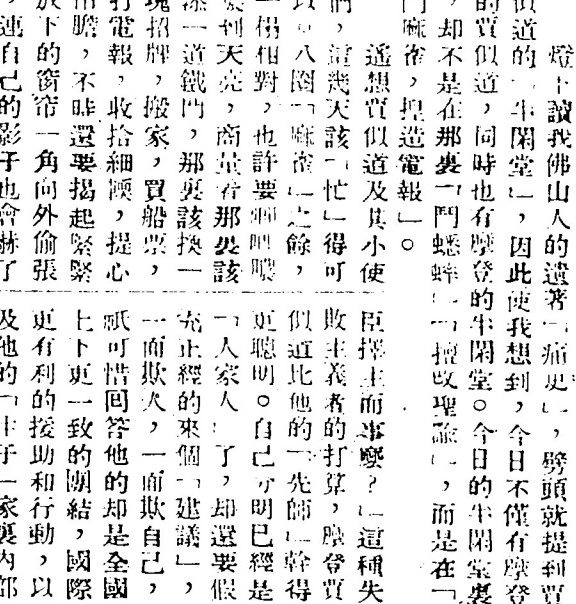 燈下讀我佛山人的遺著「痛史」，劈頭就提到賈
似道的「半閑堂」，因此使我想到，今日不僅有摩登
的賈似道，同時也有摩登的半閑堂。今日的半閑堂裏
，却不是在那裏「鬥蟋蟀」「擅改聖諭」，而是在「
鬥麻雀，捏造電報」。
遙想賈似道及其小使
們，這幾天該「忙」得可
以。八圈「麻雀」之餘，
一榻相對，也許要唧唧噥
噥到天亮，商量着那裏該
添一道鐵門，那裏該換一
塊招牌，搬家，買船票，
打電報，收拾細軟，提心
吊膽，不時還要揭起緊緊
放下的窗帘一角向外偷張
連自己的影子也會嚇了
臣擇主而事麼？」這種失
敗主義者的打算，摩登賈
似道比他的「先師」幹得
更聰明。自己分明已經是
「人家人」了，却還要假
充正經的來個「建議」，
一面欺人，一面欺自己，
祇可惜回答他的却是全國
上下更一致的團結，國際
更有利的援助和行動，以
及他的「半子」家裏內部